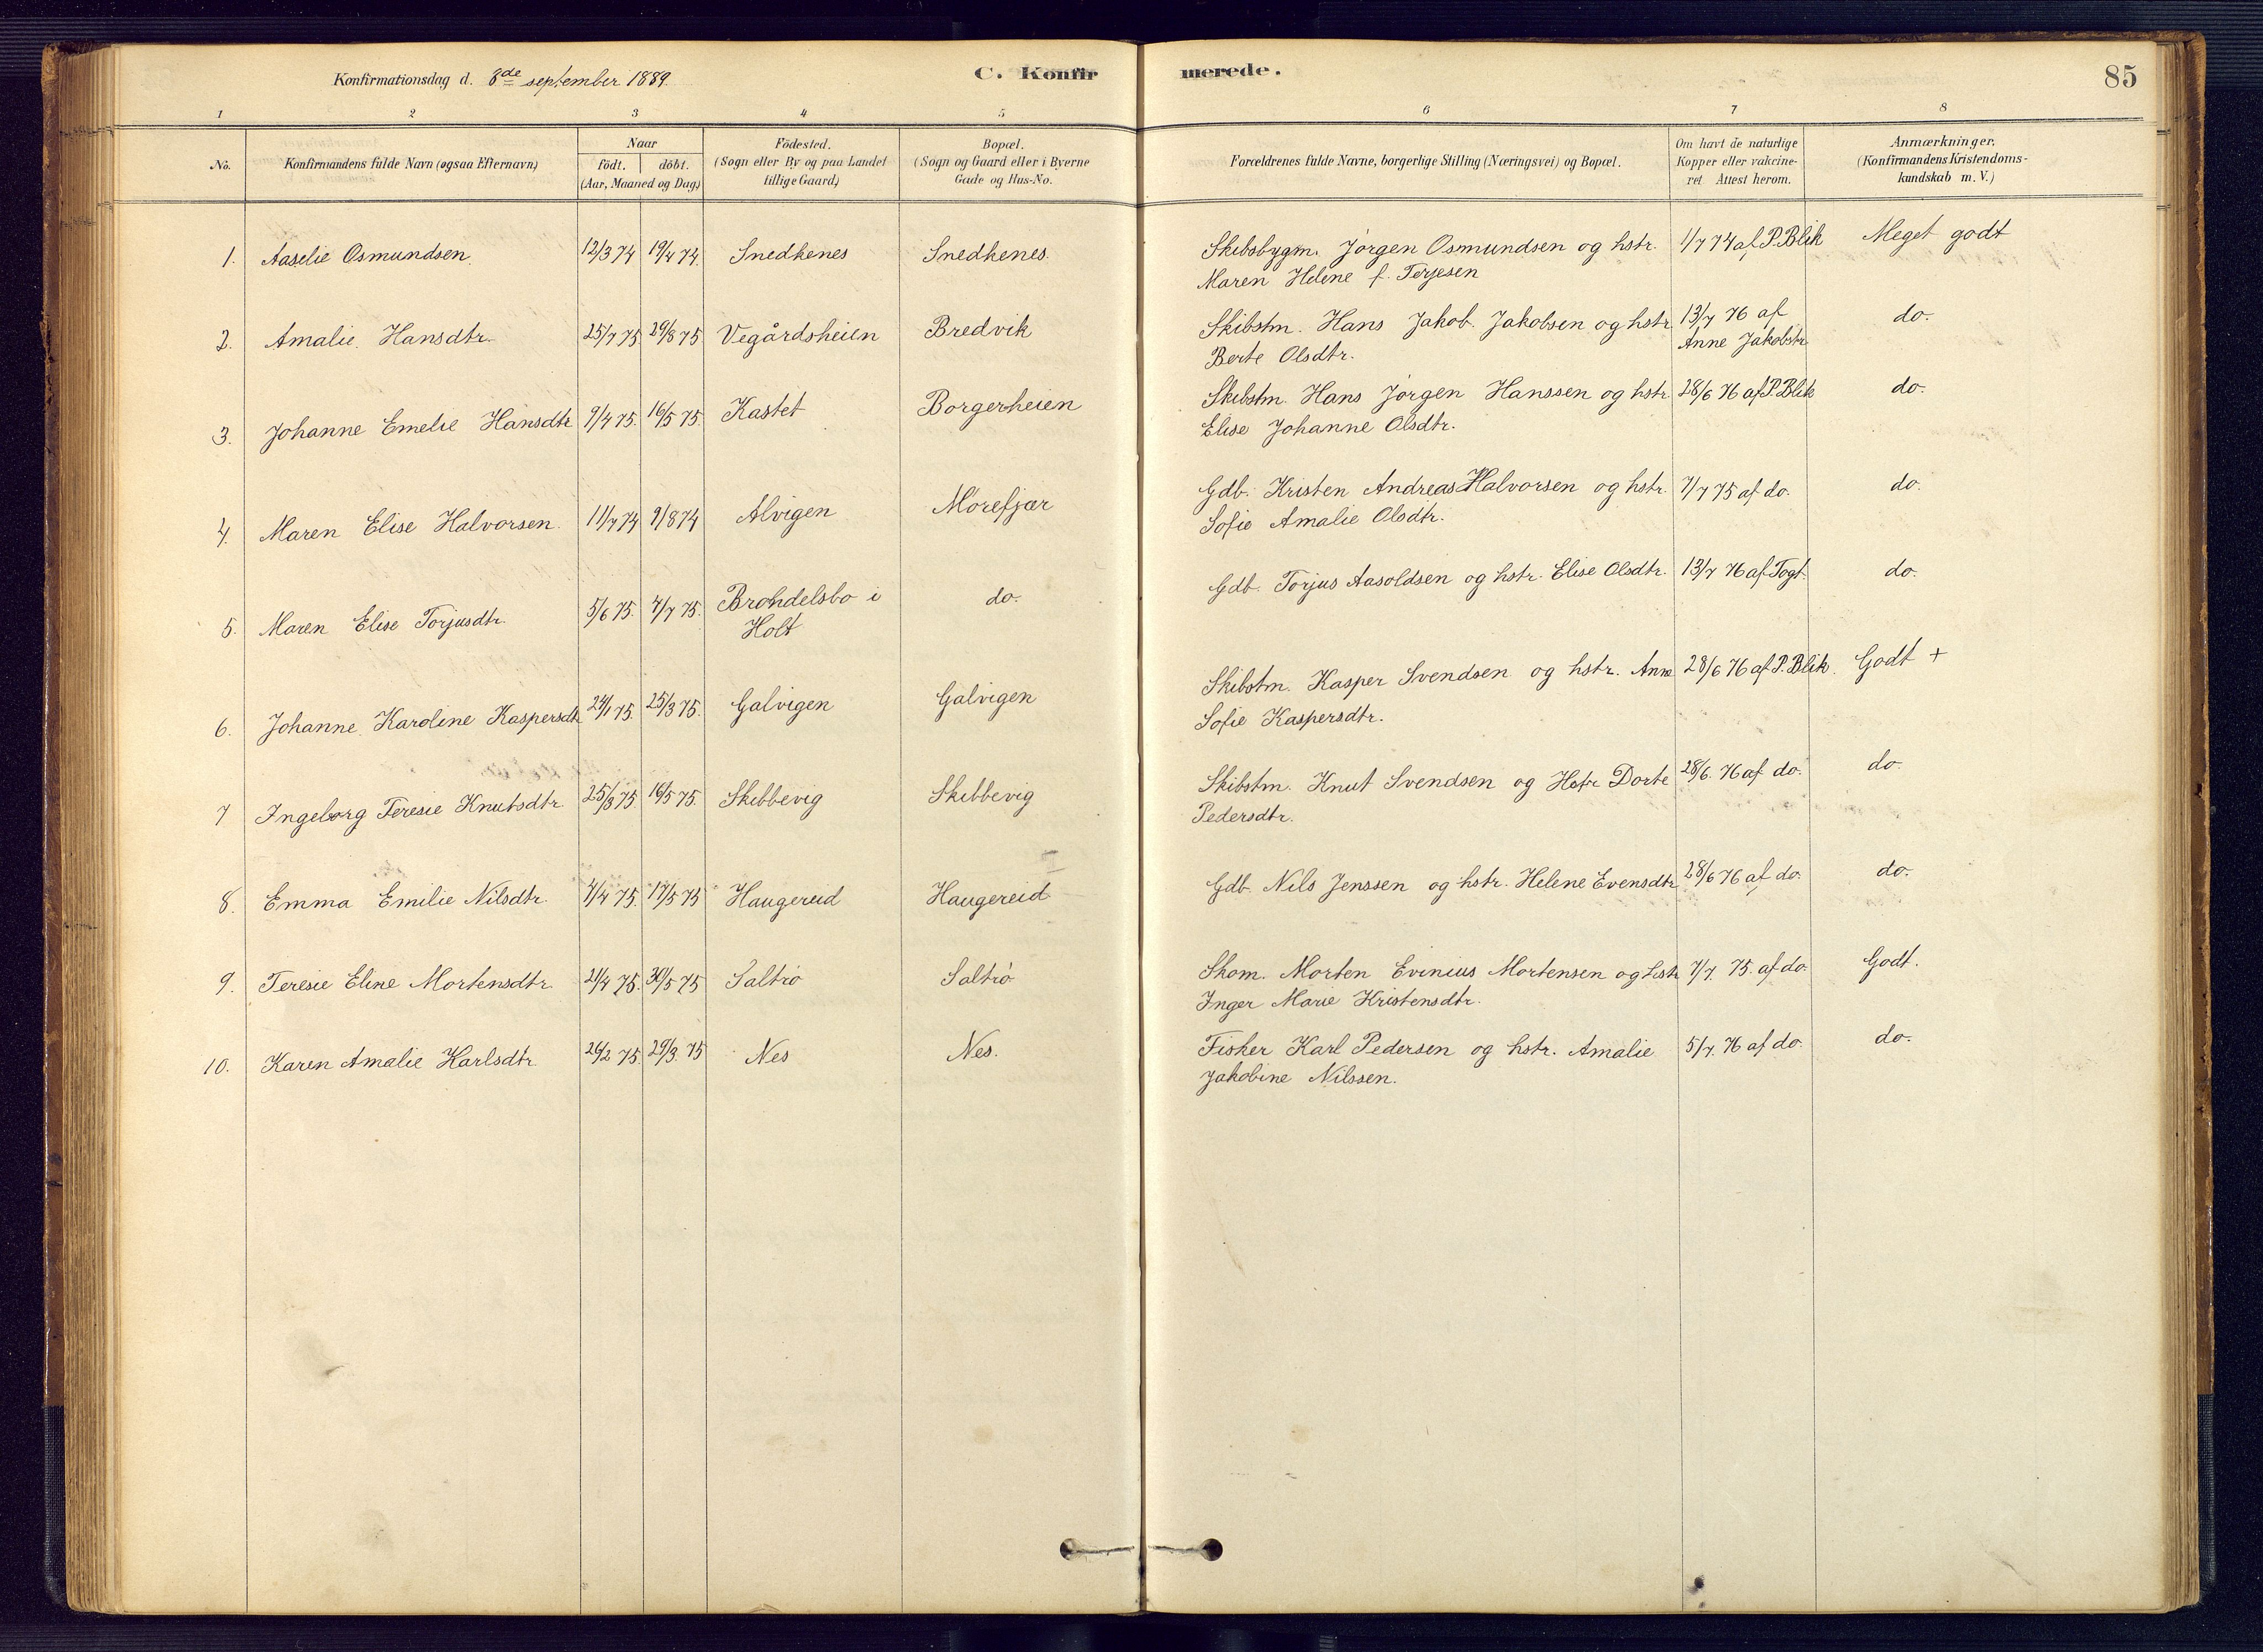 Konfirmationsdag d. 8de september 1889.
C. Konfirmerede.
85
1 2 3 4 5 6 7 8
No.
Konfirmandens fulde Navn (ogsaa Efternavn)
Naar
födt. döbt.
(Aar, Maaned og Dag)
Födested.
(Sogn eller By og paa Landet
tillige Gaard)
Bopæl.
(Sogn og Gaard eller i Byerne
Gade og Hus-No.
Forældrenes fulde Navne, borgerlige Stilling (Næringsvei) og Bopæl.
Om havt de naturlige
Kopper eller vakcine-
ret Attest herom.
Anmærkninger.
(Konfirmandens Kristendoms-
kundskab m. V.)
1. Aaselie Osmundsen. 12/3 74 19/4 74. Snedkenes Snedkenes. Skibsbygm. Jørgen Osmundsen og hstr. 1/7 74 af P. Blik Meget godt
Maren Helene f. Terjesen
2. Amalie Hansdtr. 25/7 75 29/8 75 Vegårdsheien Bredvik Skibstm. Hans Jakob Jakobsen og hstr. 13/7 76 af do.
Berte Olsdtr. Anne Jakobstr.
3. Johanne Emelie Hansdtr 9/4 75. 16/5 75. Kastet Borgerheien Skibstm. Hans Jörgen Hanssen og hstr. 28/6 76 af P. Blik do.
Elise Johanne Olsdtr.
4. Maren Elise Halvorsen. 11/7 74 9/8 74 Alvigen Mörefjær Gdb. Kristen Andreas Halvorsen og hstr. 7/7 75 af do. do.
Sofie Amalie Olsdtr.
5. Maren Elise Torjusdtr. 5/6 75. 4/7 75. Brondelsbo i do. Gdb. Torjus Aasoldsen og hstr. Elise Olsdtr. 13/7 76 af Togt. do.
Holt
6. Johanne Karoline Kaspersdtr 24/1 75. 25/3 75. Galvigen Galvigen Skibstm. Kasper Svendsen og hstr. Anne 28/6 76 af P. Blik. Godt +
Sofie Kaspersdtr.
7 Ingeborg Teresie Knutsdtr. 25/3 75. 16/5 75. Skibbevig Skibbevig Skibstm. Knut Svendsen og Hstr Dorte 28/6. 76 af do. do.
Pedersdtr.
8. Emma Emilie Nilsdtr. 4/4 75. 17/5 75 Haugereid Haugereid Gdb. Nils Jenssen og hstr. Helene Evensdtr 28/6 76 af do. do.
9. Teresie Eline Mortensdtr. 21/4 75. 30/5 75 Saltrö Saltrö Skom. Morten Evinius Mortensen og hstr 7/7. 75. af do. Godt.
Inger Marie Kristensdtr.
10. Karen Amalie Karlsdtr. 26/2 75. 29/3. 75 Nes Nes. Fisker Karl Pedersen og hstr. Amalie 5/7. 76 af do. do.
Jakobine Nilssen.